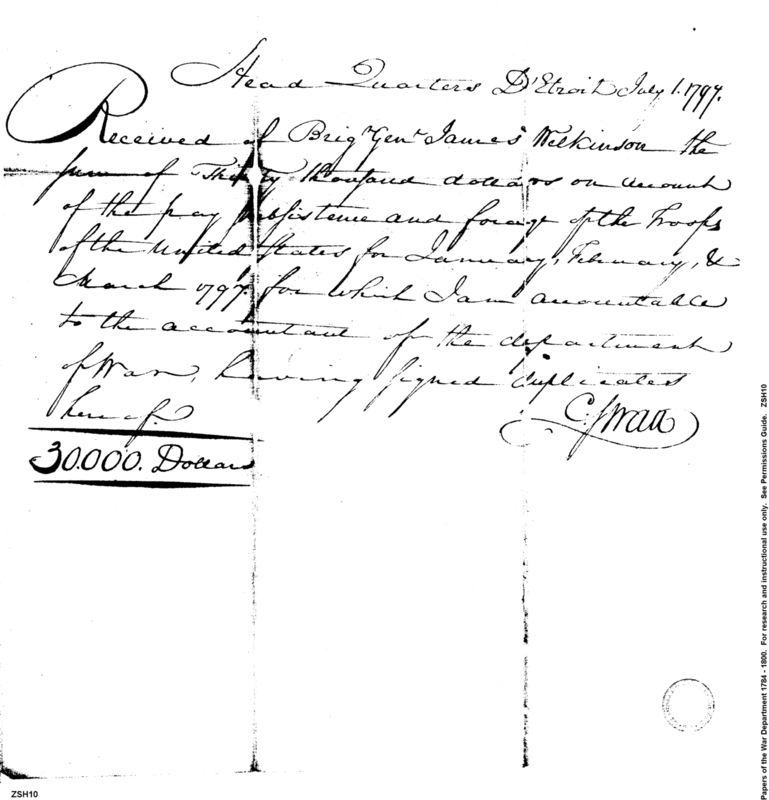 Head Quarters D'Etroit July 1. 1797.
Received of Brigr. Genl. James Wilkinson the
sum of Thirty thousand dollars on account
of the pay subsistence and forage of the Troops
of the United States for January, February, &
March 1797 for which I am accountable
to the accountant of the department
of War, having signed duplicates
hereof.
C. Swan
30.000. Dollars
Papers of the War Department 1784 - 1800. For research and instructional use only. See Permissions Guide. ZSH10
ZSH10